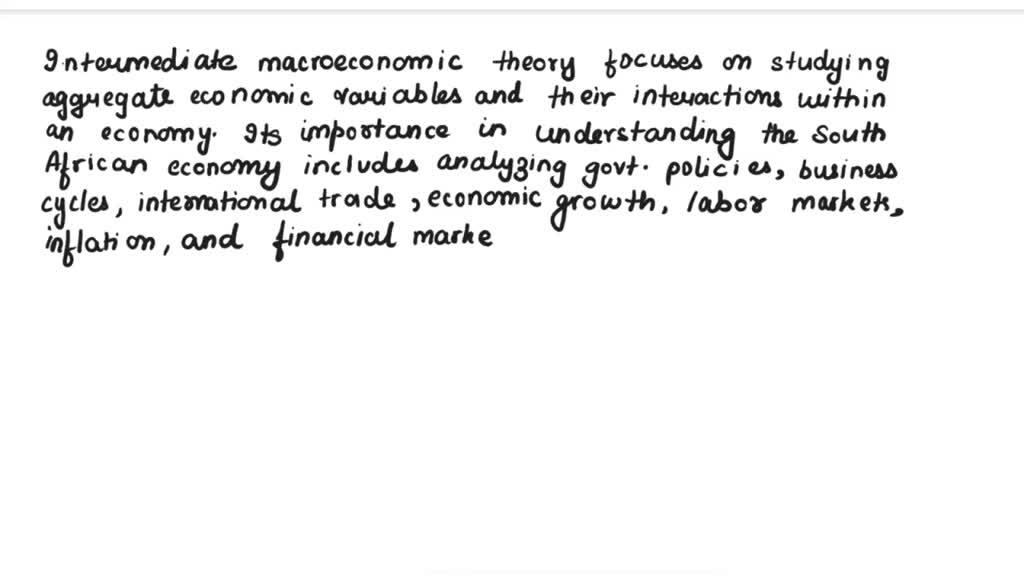 Intermediate macroeconomic theory focuses on studying
aggregate economic variables and their interactions within
an economy. Its importance in understanding the South
African economy includes analyzing govt. policies, business
cycles, international trade, economic growth, labor markets,
inflation, and financial marke